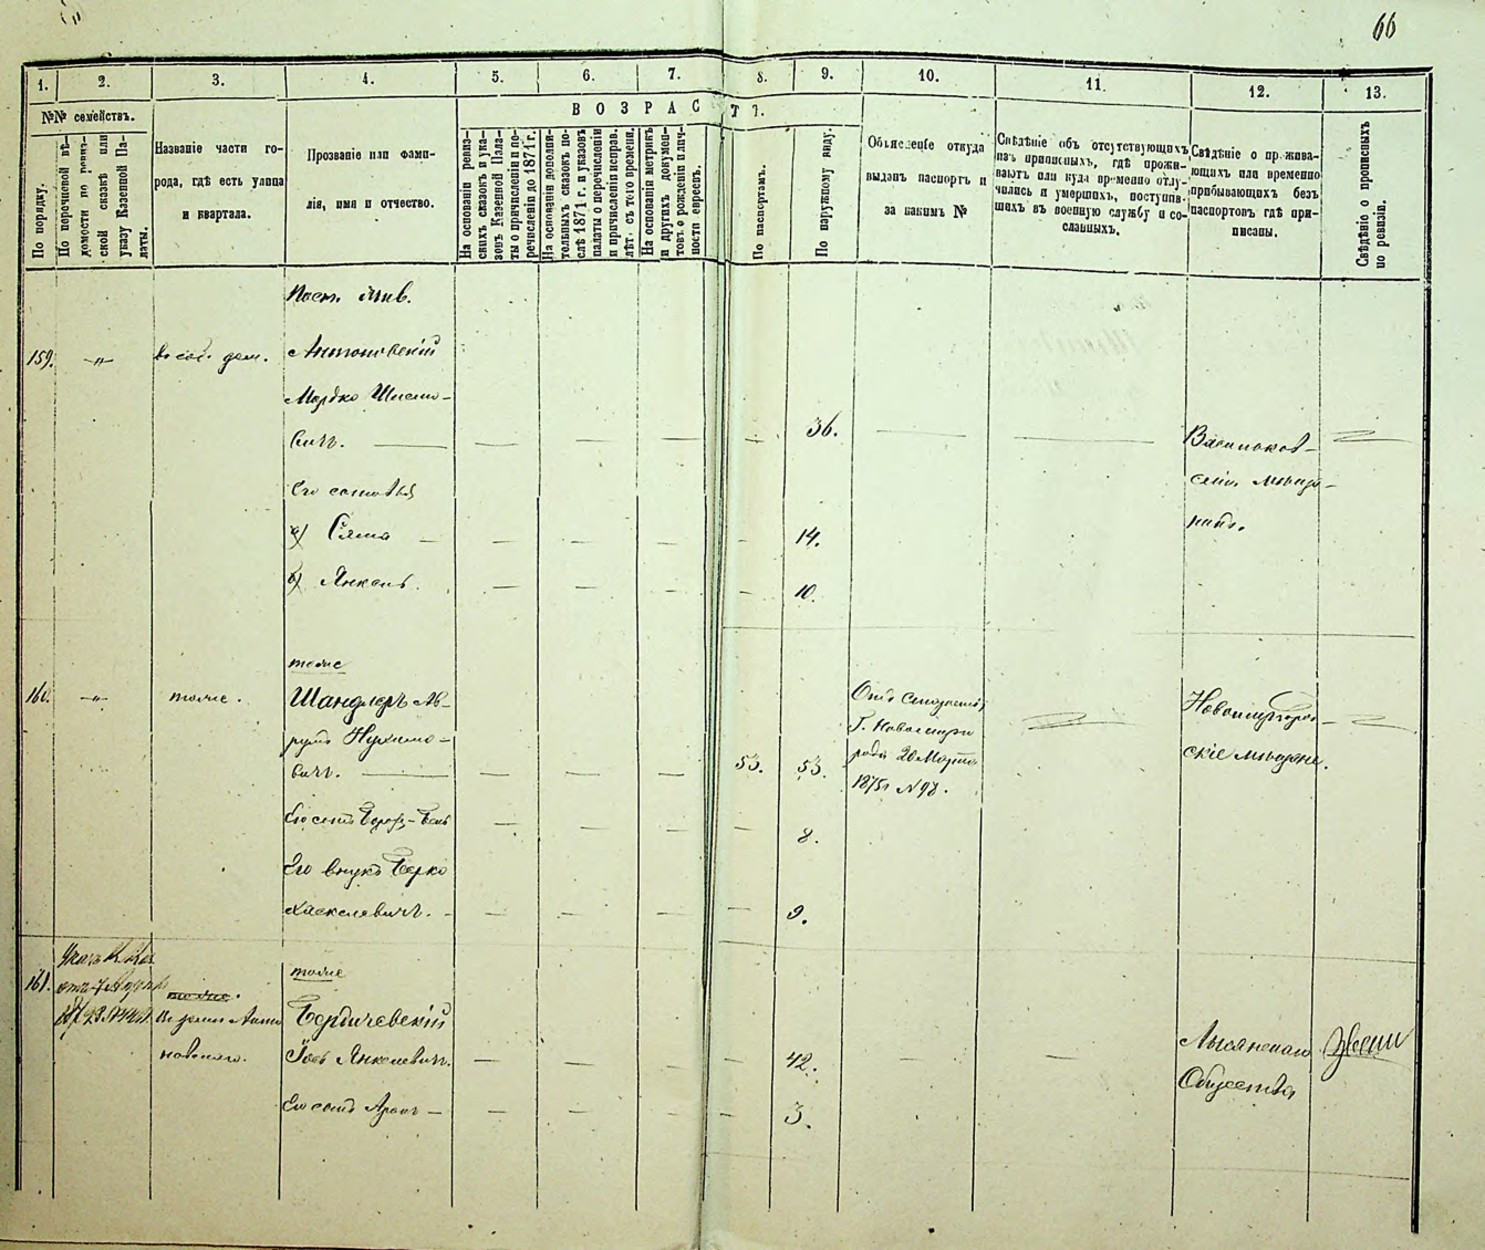 66
1.
2.
3.
4.
5.
6.
7.
8.
9.
10.
11.
12.
13.
№№ семействъ.
По порядку.
По перечневой вѣ-
домости по ревиз-
ской сказкѣ или
указу Казенной Па-
латы.
Названіе части го-
рода, гдѣ есть улица
и квартала.
Прозваніе или фами-
лія, имя и отчество.
ВОЗРАСТЪ.
На основаніи ревиз-
скихъ сказокъ и ука-
зовъ Казенной Пала-
ты о причисленіи и пе-
речисленіи до 1871 г.
На основаніи дополни-
тельныхъ сказокъ по-
слѣ 1871 г. и указовъ
палаты о перечисленіи
и причисленіи исправ.
лѣтъ съ того времени.
На основаніи метрикъ
и другихъ докумен-
товъ о рожденіи и лич-
ности евреевъ.
По паспортамъ.
По наружному виду.
Объясненіе откуда
выданъ паспортъ и
за какимъ №
Свѣдѣніе объ отсутствующихъ
изъ приписныхъ, гдѣ прожи-
ваютъ или куда временно отлу-
чились и умершихъ, поступив-
шихъ въ военную службу и со-
сланныхъ.
Свѣдѣніе о прожива-
ющихъ или временно
прибывающихъ безъ
паспортовъ гдѣ при-
писаны.
Свѣдѣніе о прописныхъ
по ревизіи.
159.
Антоновскій
Мордко Шлемо-
вичъ.
36.
Его сыновья
а) Сяма
14.
б) Янкель
10.
тоже
160.
тоже.
Шандлеръ Ав-
румъ Нухимо-
вичъ.
53.
53.
Г. Новомирго
рода 20 Марта
1875 г № 98.
Новомиргород-
скіе мѣщане.
Его сынъ
8.
Его внукъ Берко
Хаскелевичъ.
9.
161.
тоже.
тоже
Бердичевскій
Іось Янкелевичъ.
42.
Лысянскаго
Общества
Его сынъ Аронъ
3.